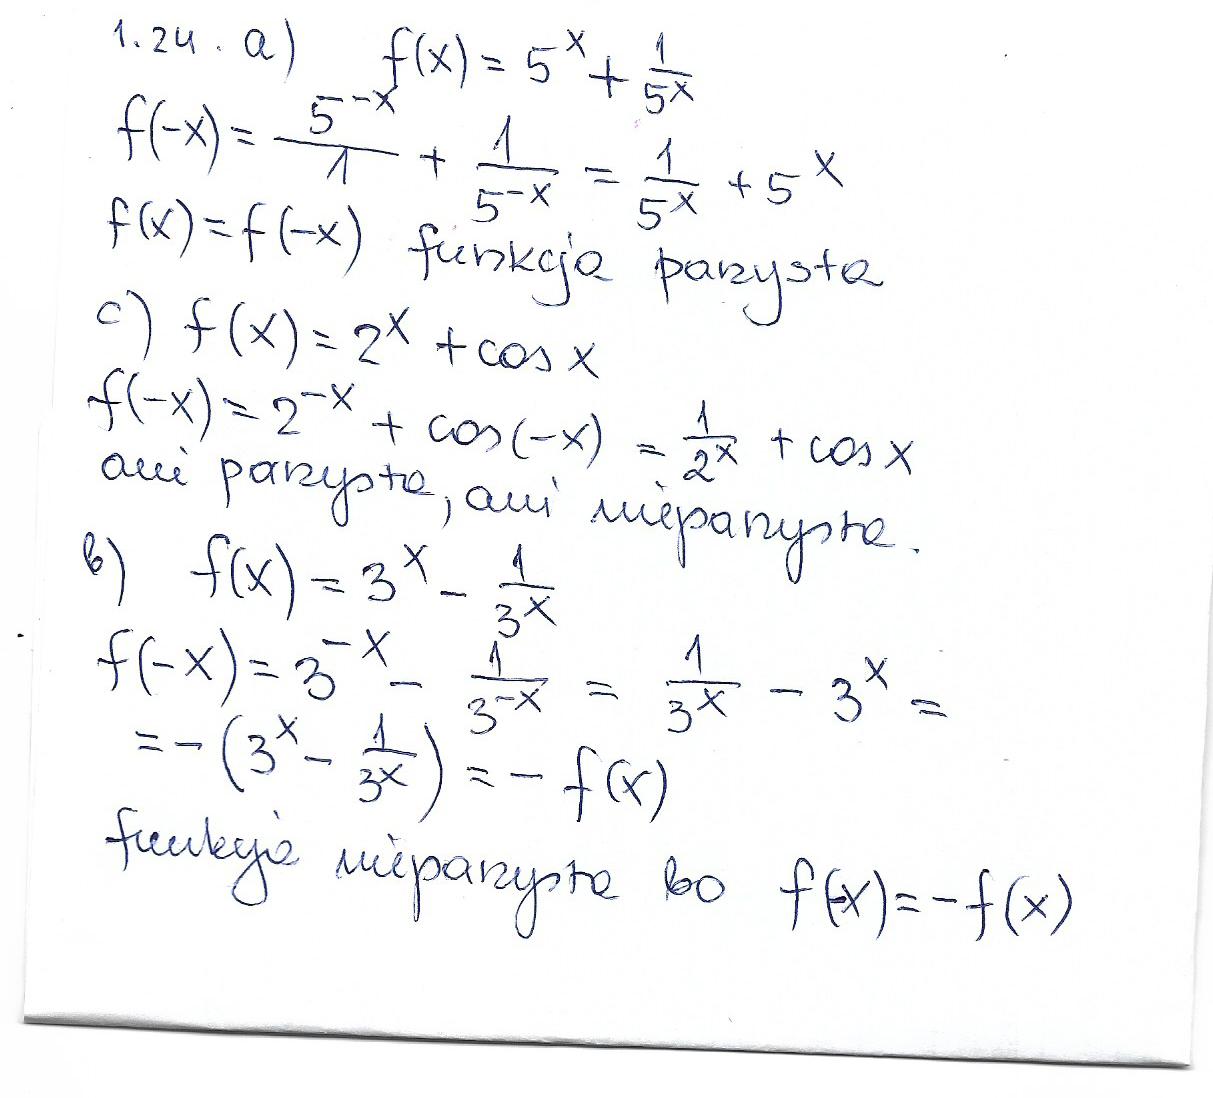 1.24. a) f(x) = 5^x + 1/5^x
f(-x) = 5^-x/1 + 1/5^-x = 1/5^x + 5^x
f(x) = f(-x) funkcja parzysta
c) f(x) = 2^x + cos x
f(-x) = 2^-x + cos(-x) = 1/2^x + cos x
ani parzysta, ani nieparzysta.
b) f(x) = 3^x - 1/3^x
f(-x) = 3^-x - 1/3^-x = 1/3^x - 3^x =
= -(3^x - 1/3^x) = - f(x)
funkcja nieparzysta bo f(-x) = -f(x)